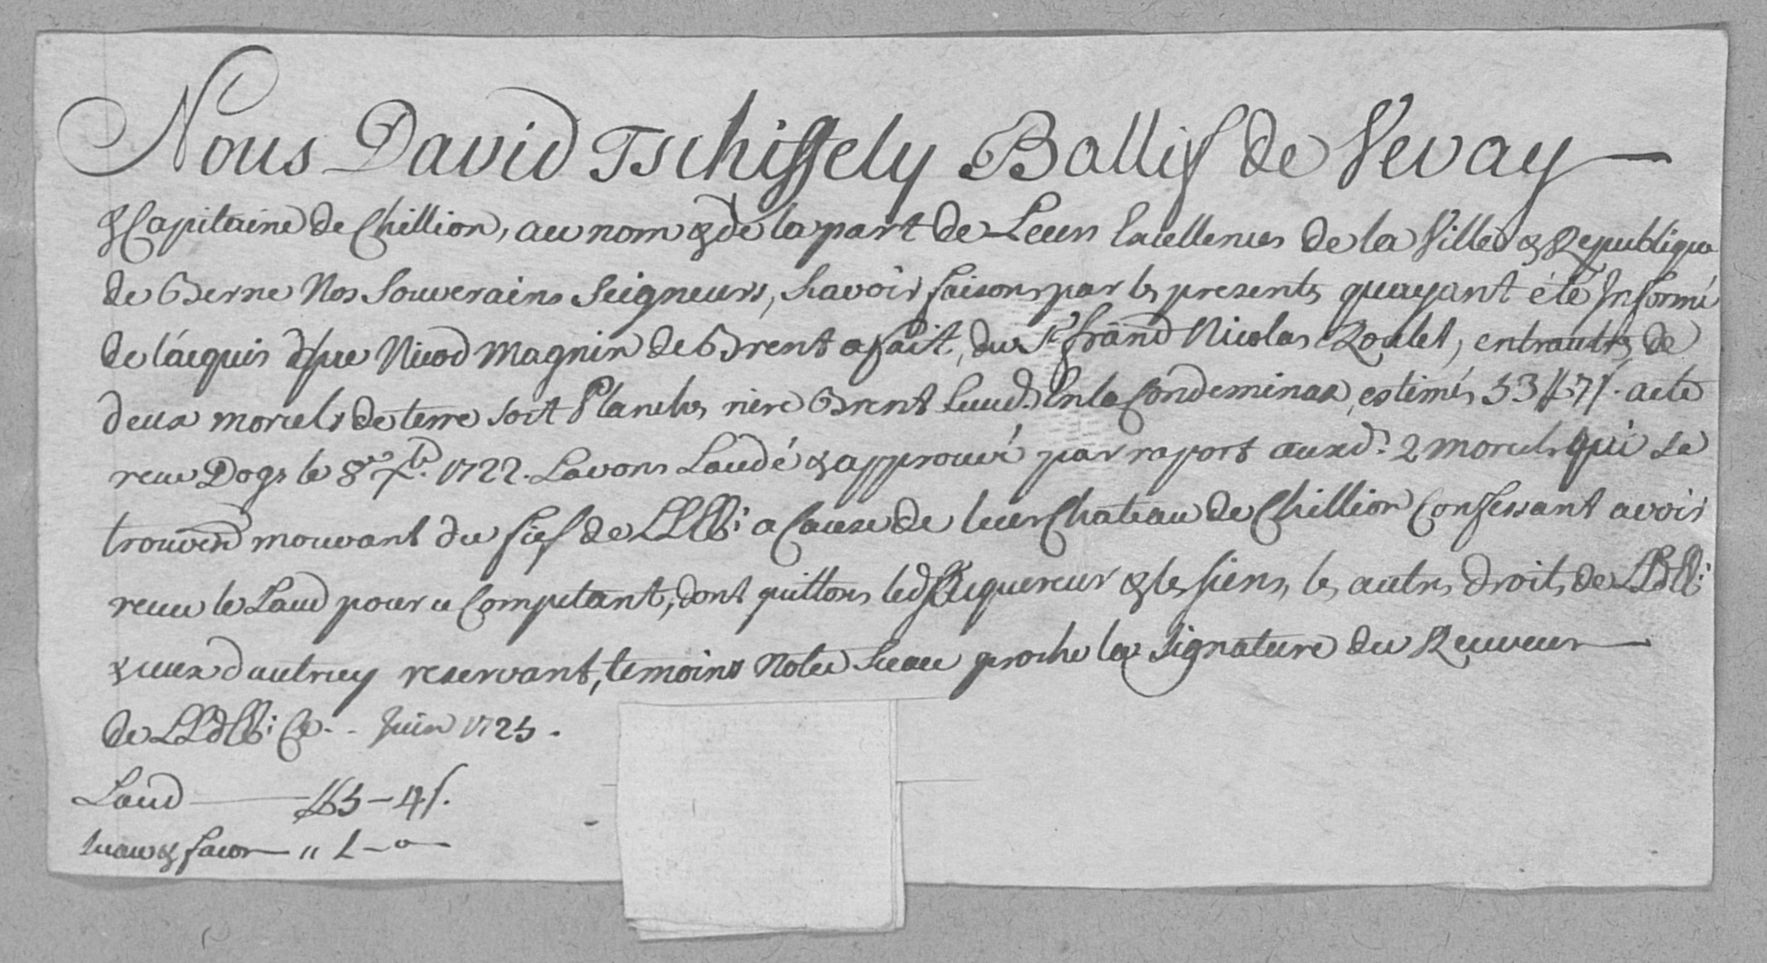 Nous David Tschiffely Ballif de Vevay
& Capitaine de Chillion, au nom & de la part de Leurs Excellences de la Ville & Republique
de Berne Nos Souverains Seigneurs, Scavoir faisons par les presentes quayant été Informé
de lacquis que Nicod Magnin de Brent a fait, du Sr. Nicolas Roulet, entrautres de
deux morcels de terre soit Planches riere Brent Lieud. En la Condeminaz, estimés 53 ££ 7 s. acte
receu Dogs le 8e. 7bre. 1722. Lavons Laudé & approuvé par raport auxd. 2 morcels qui se
trouvent mouvant du fief de LLEE: a Cause de leur Chateau de Chillion Confessant avoir
receu le Laud pour ce Competant, dont quittons led. Acquereur & les siens, les autres droits de LLdEE:
& ceux dautruy reservant, temoins Notre Sceau proche la Signature du Receveur
de LLdEE: Ce - - Juin 1725.
Laud — ££ 5 - 4 s.
Sceau & facon — " 1 - " -